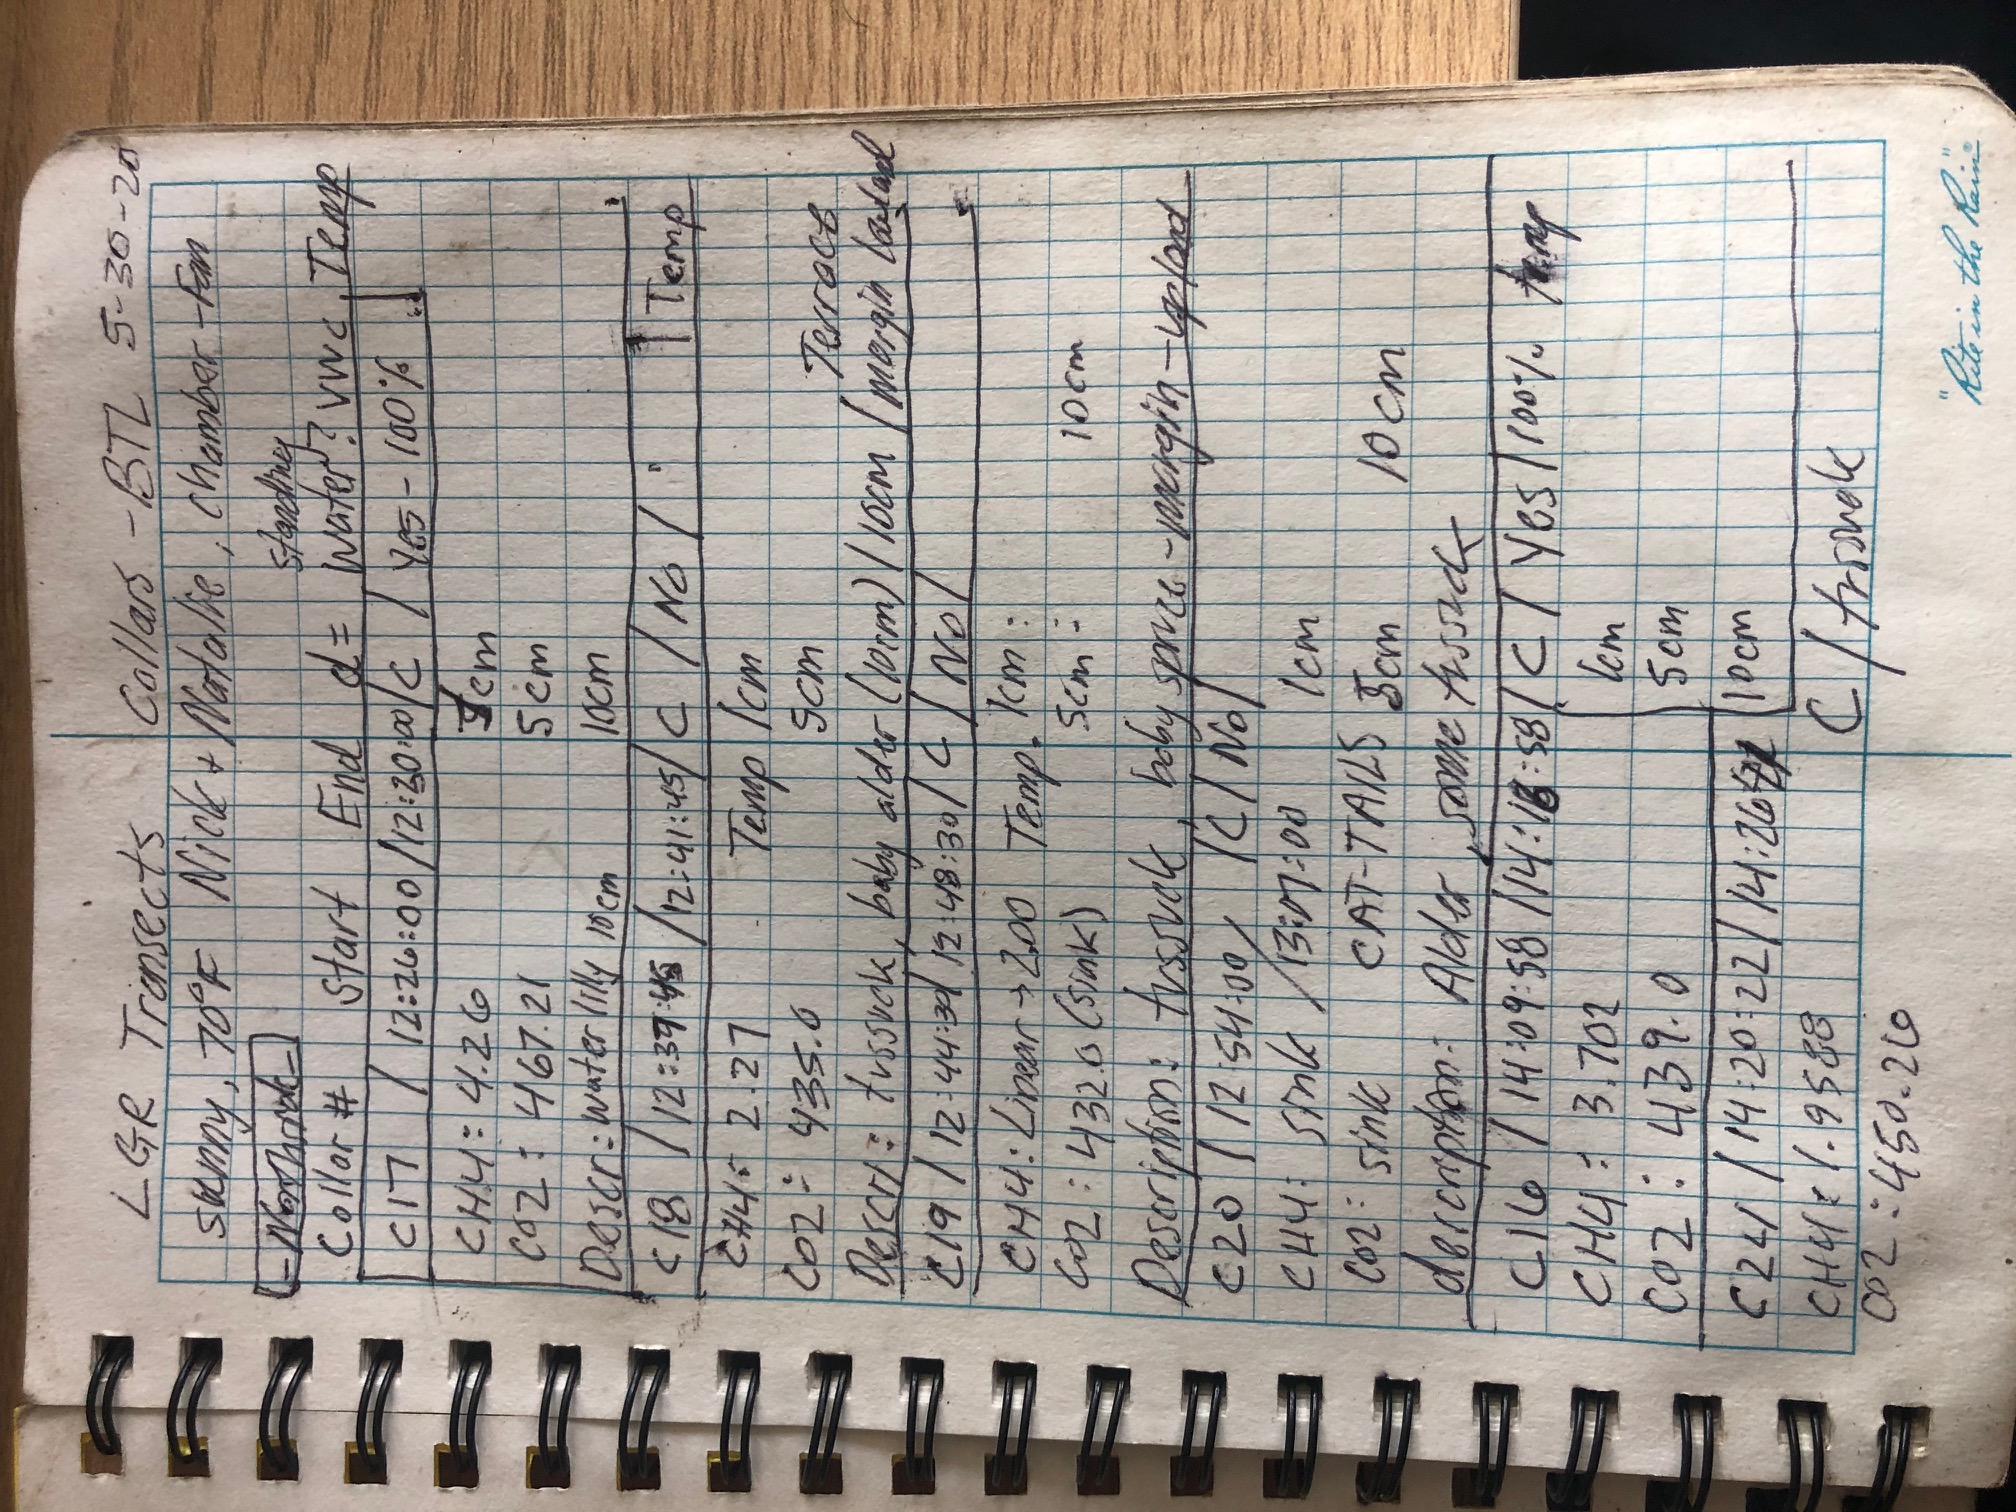 LGR Transects Collars - BTL 5-30-20
sunny, 70°F Nick + Natalie, chamber-Fan
-Northside-
standing
Collar # Start End d= water? VWC Temp
C17 / 12:26:00 / 12:30:00 / C / Yes - 100%
CH4: 4.26 1cm
CO2: 467.21 5cm
Descr: water lilly 10cm 10cm
C18 / 12:37:45 / 12:41:45 / C / No / Temp
CH4: 2.27 Temp 1cm
CO2: 435.0 5cm Terrace
Descr: tussuck, baby alder (10cm) / 10cm / margin
C19 / 12:44:30 / 12:48:30 / C / No /
CH4: Linear → 2.00 Temp. 1cm:
CO2: 432.0 (sink) 5cm: 10cm
Description: tussuck, baby spruce - margin - upland
C20 / 12:54:00 / / C / No /
CH4: sink / 13:07:00 1cm
CO2: sink CAT-TAILS 5cm 10cm
description: Alder, some tussuck
C16 / 14:09:58 / 14:16:58 / C / Yes / 100% temp
CH4: 3.702 1cm
CO2: 439.0 5cm
C24 / 14:20:22 / 14:26:22 10cm
CH4: 1.9588 C / tussuck
CO2: 450.26
"Rite in the Rain"